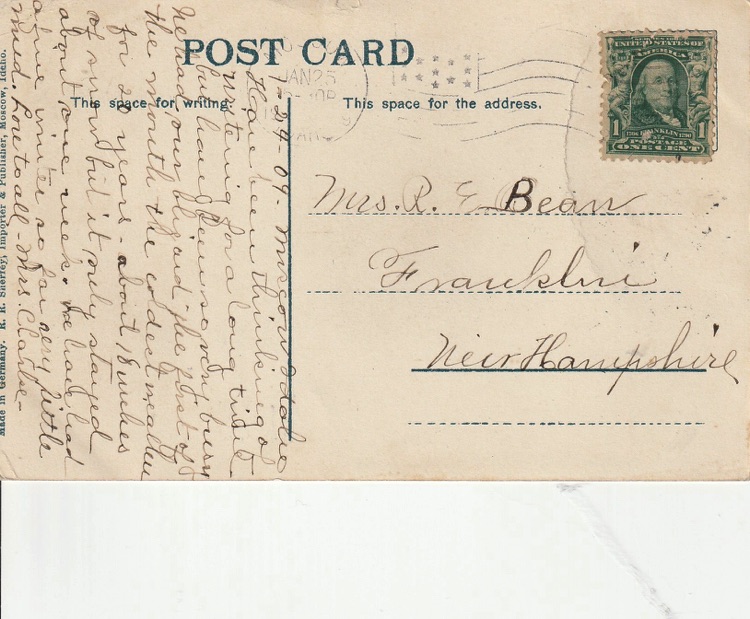 POST CARD
This space for writing.
This space for the address.
JAN 25
UNITED STATES OF
AMERICA
1 FRANKLIN 1
POSTAGE
ONE CENT
Mrs. R. E. Bean
Franklin
New Hampshire
1-24-09- Moscow Idaho
Have been thinking of
writing for a long time
but have been so very busy
We had our blizzard the first of
the month the coldest weather
for 20 years - about 18 inches
of snow but it only stayed
about one week. We have had
a fine winter so far very little
mud. Love to all - Mrs Clarke-
Made in Germany. R. R. Sherfey, Importer & Publisher, Moscow, Idaho.